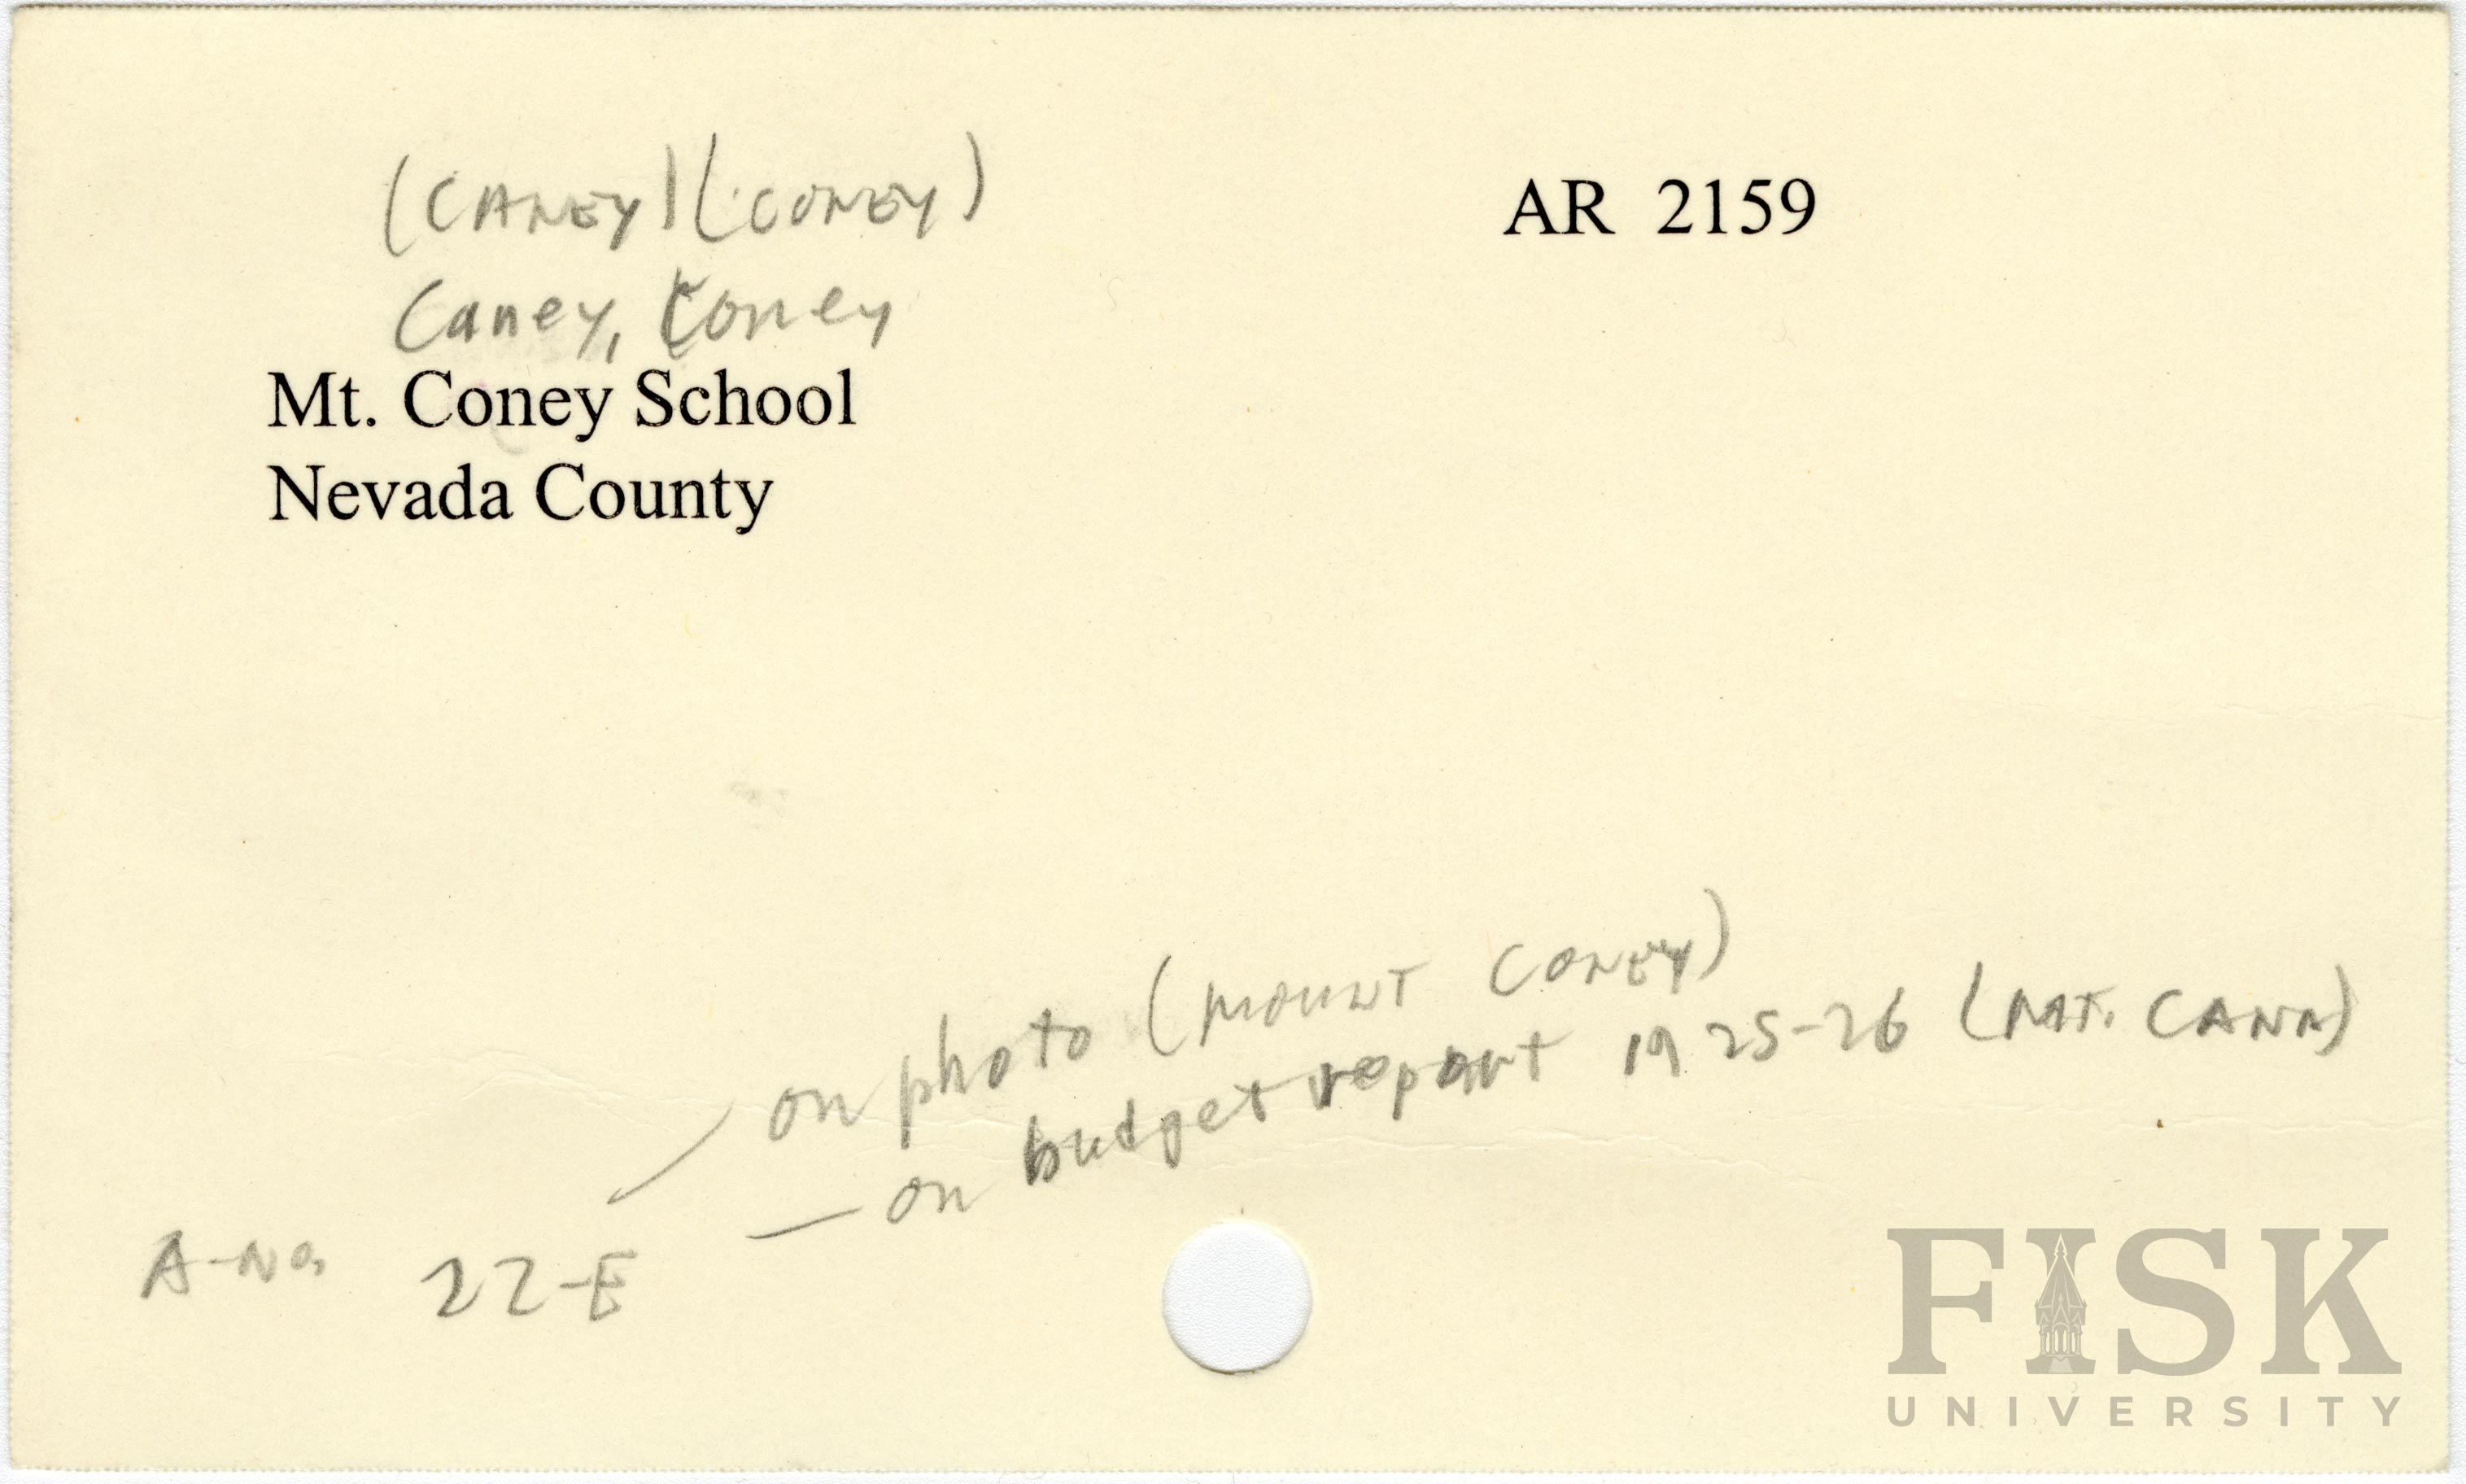 (CANEY)(CONEY)
AR 2159
Caney, Coney
Mt. Coney School
Nevada County
on photo (MOUNT CONEY)
on budget report 1925-26 (MT. CANA)
A-No. 22-E
FISK
UNIVERSITY